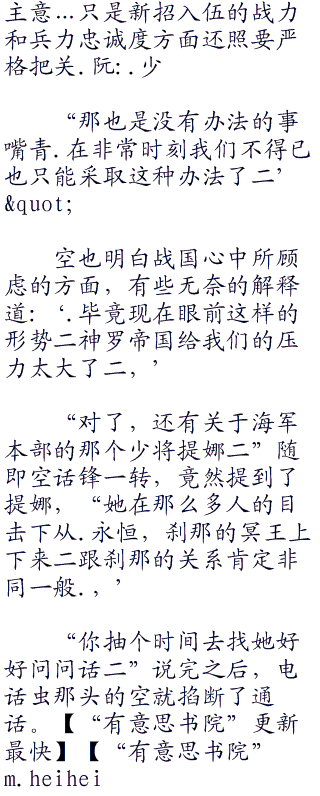 主意…只是新招入伍的战力
和兵力忠诚度方面还照要严
格把关.阮:.少
“那也是没有办法的事
嘴青.在非常时刻我们不得已
也只能采取这种办法了二’
&quot;
空也明白战国心中所顾
虑的方面，有些无奈的解释
道:‘.毕竟现在眼前这样的
形势二神罗帝国给我们的压
力太大了二，’
“对了，还有关于海军
本部的那个少将提娜二”随
即空话锋一转，竟然提到了
提娜，“她在那么多人的目
击下从.永恒，刹那的冥王上
下来二跟刹那的关系肯定非
同一般.，’
“你抽个时间去找她好
好问问话二”说完之后，电
话虫那头的空就掐断了通
话。【“有意思书院”更新
最快】【“有意思书院”
m.heihei